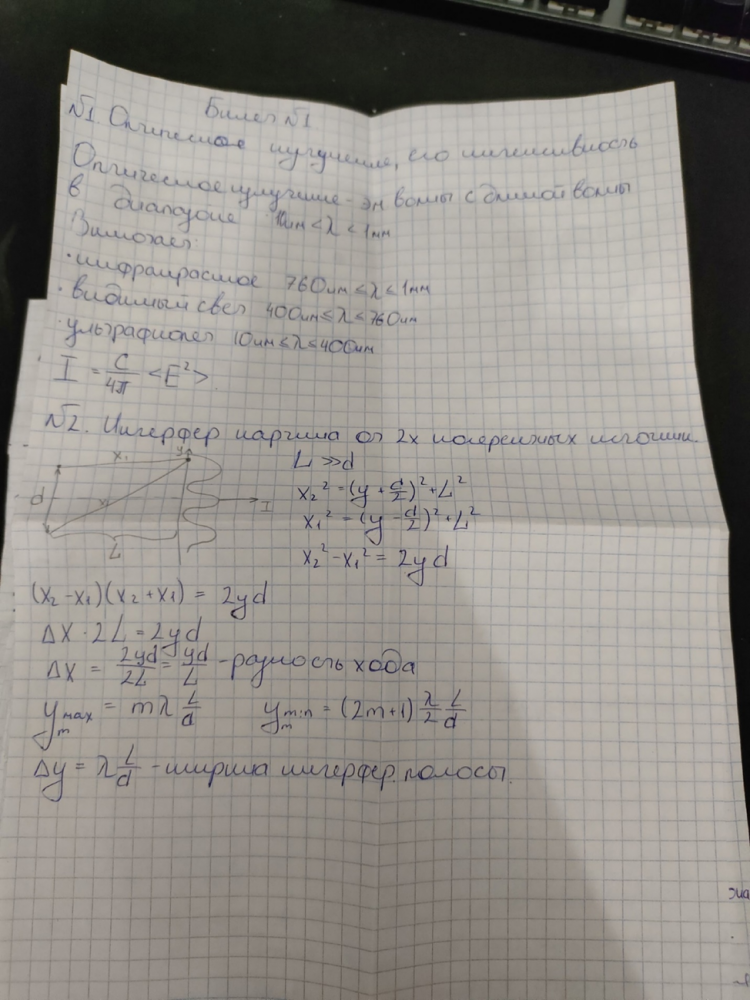 Билет №1
№1. Оптическое излучение, его интенсивность
Оптическое излучение - эм волны с длиной волны
в диапазоне 10нм < λ < 1мм
Включает:
· инфракрасное 760нм ≤ λ ≤ 1мм
· видимый свет 400нм ≤ λ ≤ 760нм
· ультрафиолет 10нм ≤ λ ≤ 400нм
· I = c/4π <E²>
№2. Интерфер картина от 2х когерентных источник.
x₁ y
d x₂ I
L
L ≫ d
x₂² = (y + d/2)² + L²
x₁² = (y - d/2)² + L²
x₂² - x₁² = 2yd
(x₂ - x₁)(x₂ + x₁) = 2yd
Δx · 2L = 2yd
Δx = 2yd/2L = yd/L - разность хода
yₘ max = mλ L/d yₘ min = (2m+1) λ/2 L/d
Δy = λ L/d - ширина интерфер. полосы.